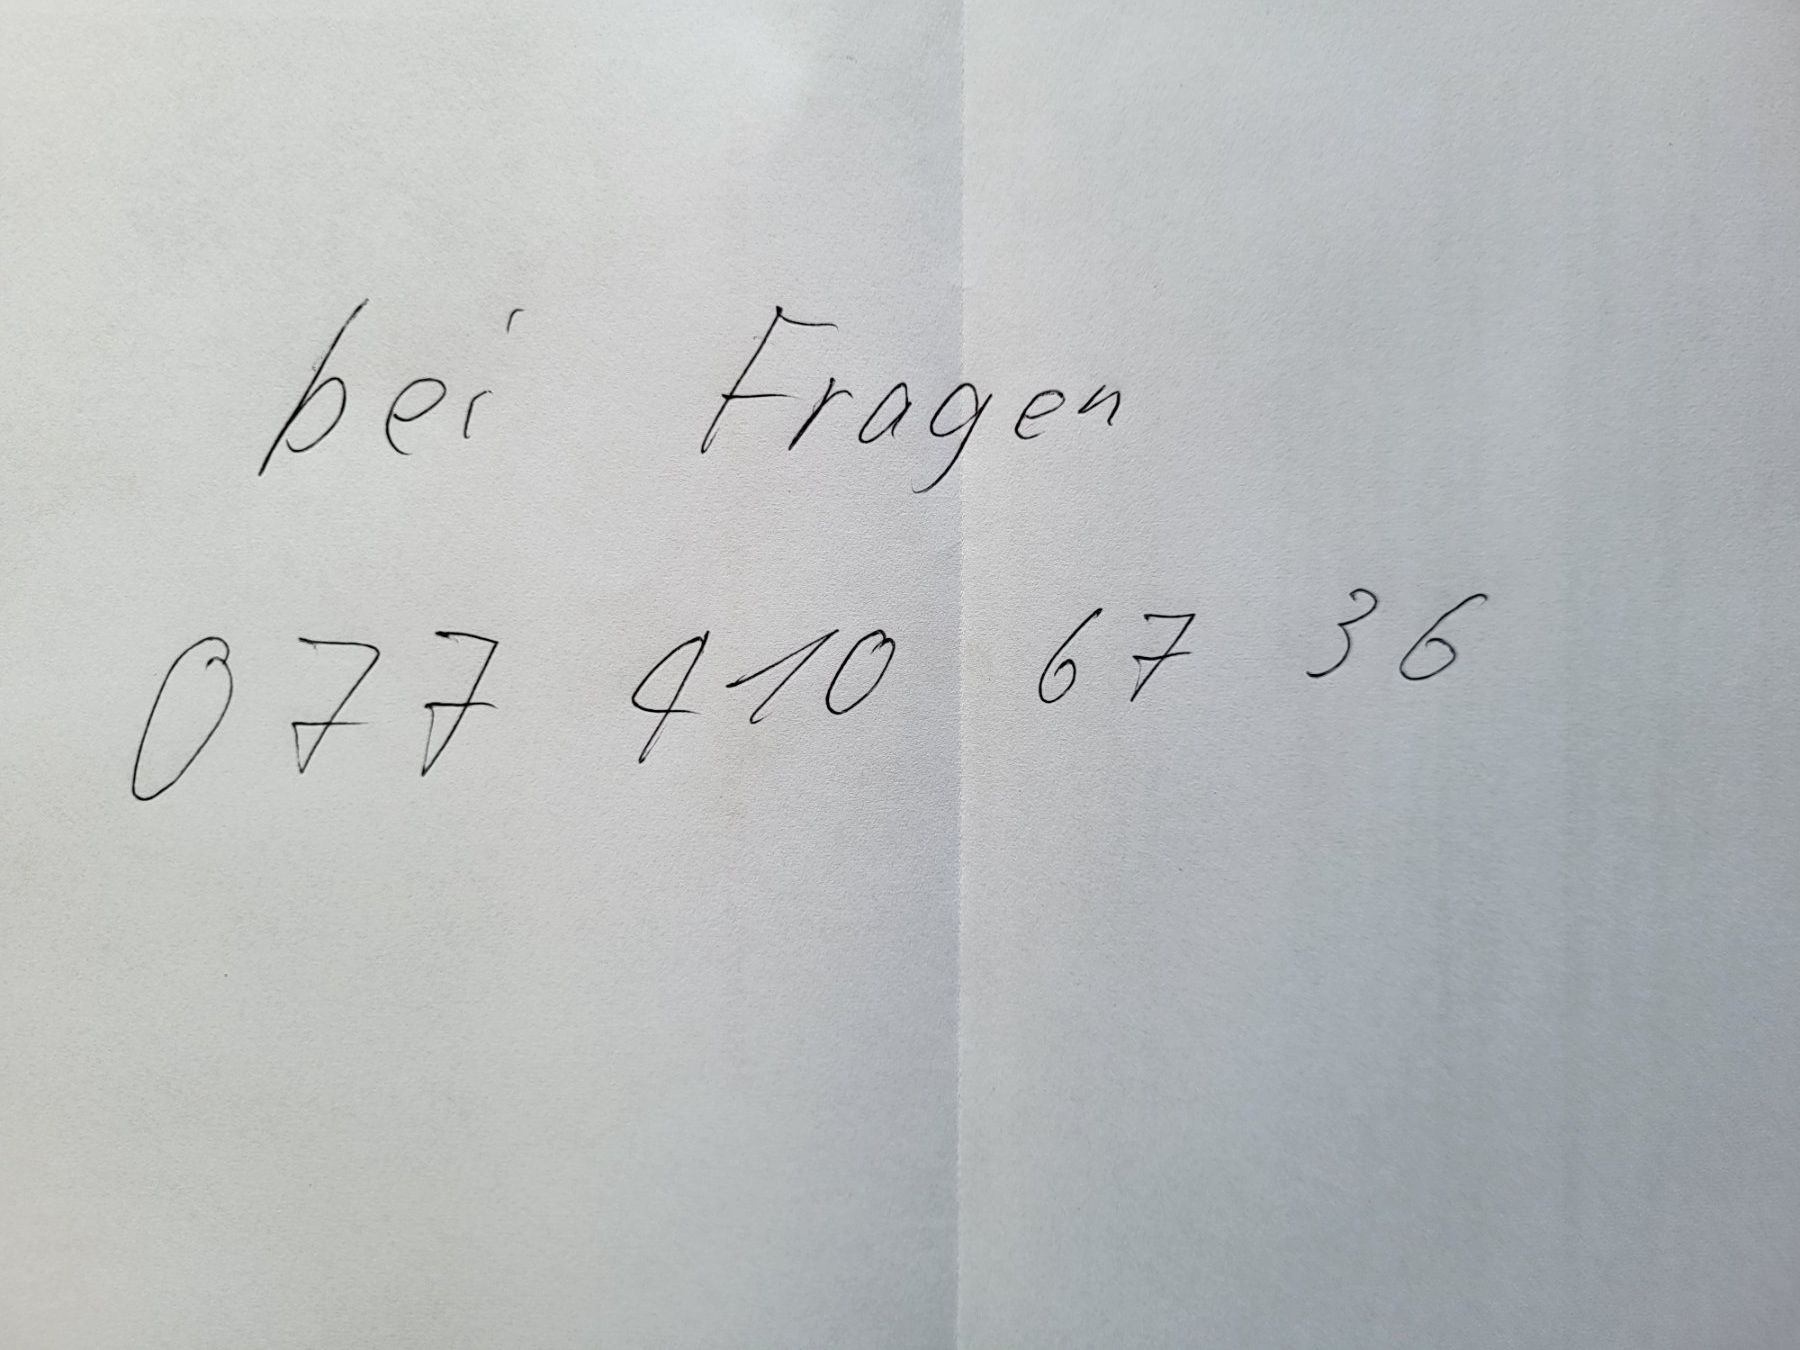 bei Fragen
077 410 67 36